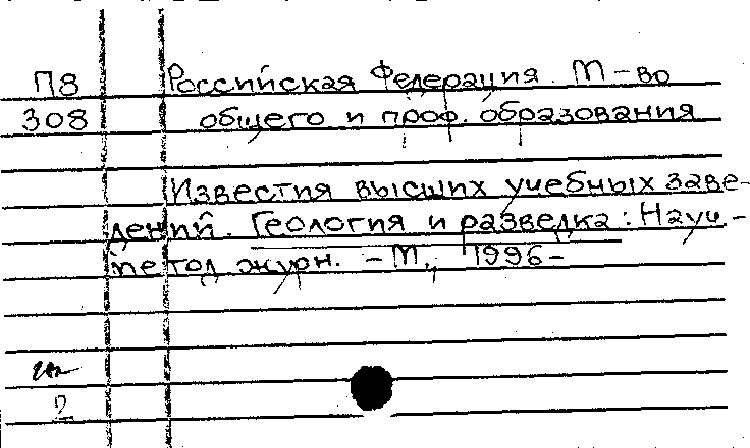 П8 Российская Федерация. М-во
308 общего и проф. образования
Известия высших учебных заве-
дений. Геология и разведка : Науч.-
метод журн. – М., 1996–
2